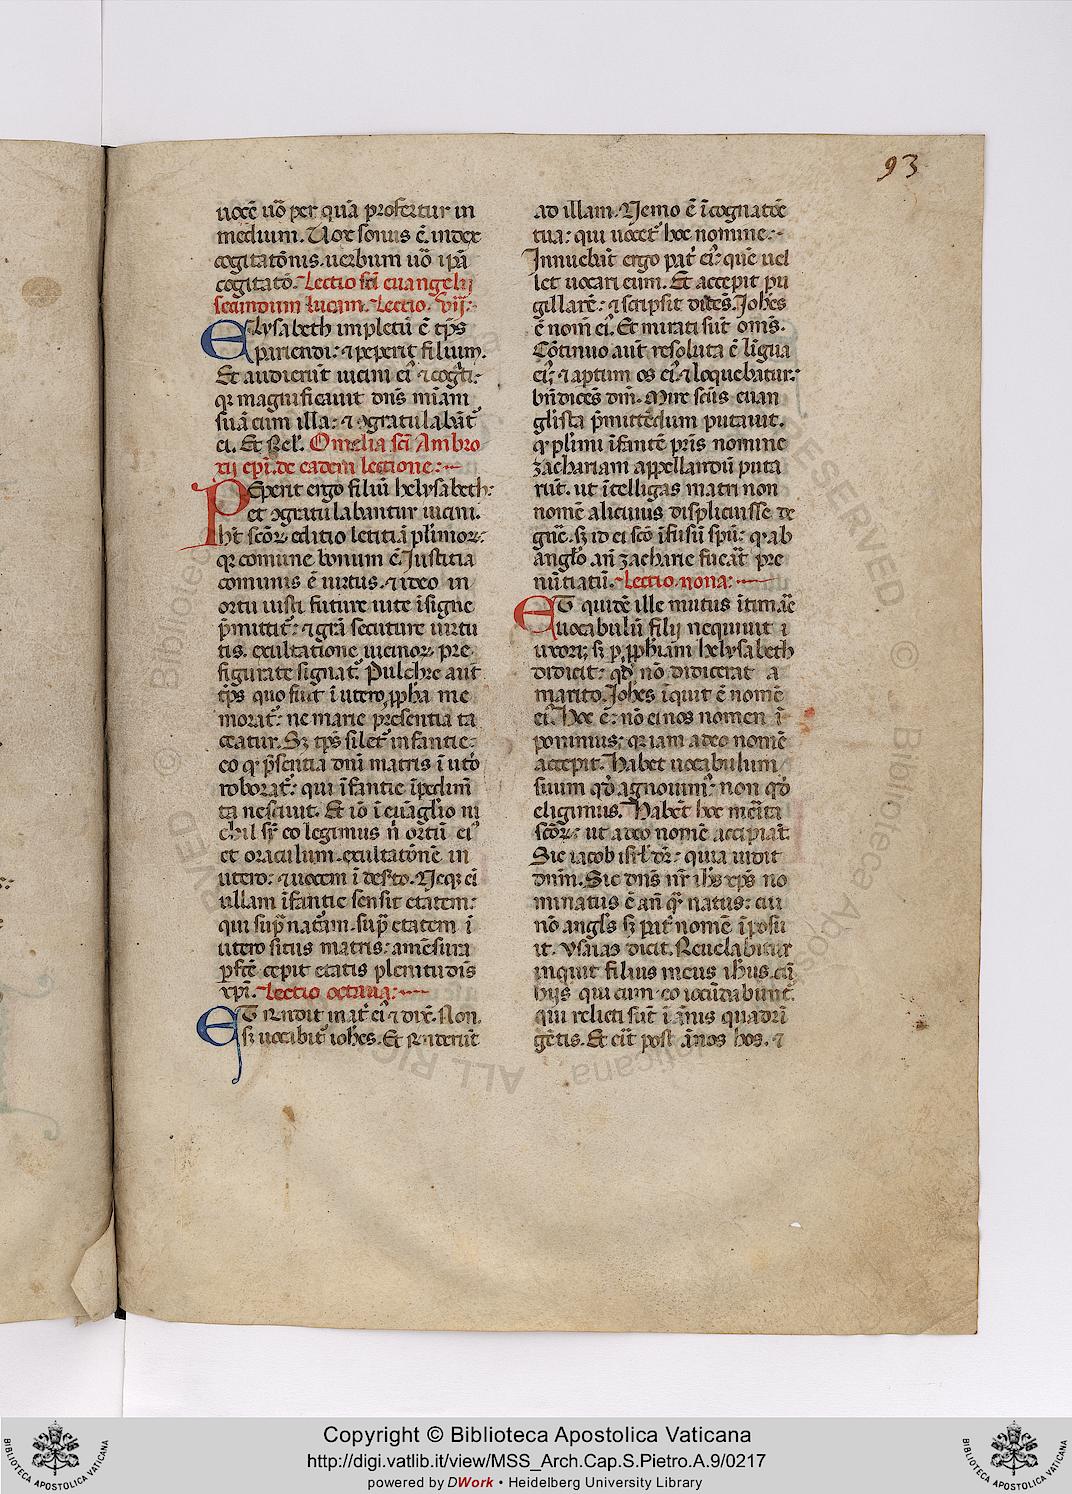 93
uocē ūo per quā profertur in
medium. Uox sonus ē. index
cogitatōnis. uerbum ūo ipā
cogitatō. Lectio scī euangelii
secundum lucam. Lectio. vij.
Elysabeth impletū ē tp̄s
pariendi: ⁊ peperit filium.
Et audierūt uicini ei᾽ ⁊ cogti:
qꝛ magnificauit dn̄s mīam
suā cum illa: ⁊ ꝯgratulabāt᾽
ei. Et Rel᾽. Omelia scī Ambro
xij ep̄i. de eadem lectione:
PEperit ergo filiū helysabeth:
et ꝯgratulabantur uicini.
Ht̄ scōꝝ editio letitiā pl᾽imoꝝ:
qꝛ comune bonum ē. Justitia
comunis ē uirtus. ⁊ ideo in
ortu iusti future uite īsigne
p̄mittit᾽: ⁊ grā secuture uirtu
tis. exultatione uicinoꝝ pre
figurate signat᾽. Pulchre aut̄
tp̄s quo fuit ī utero ꝓpha me
morat᾽: ne marie presentia ta
ceatur. Sꝫ tp̄s silet᾽ infantie:
eo ꝙ p̄sentia dn̄i matris ī ut̄o
roborat᾽: qui īfantie īpedim̄
ta nesciuit. Et iō ī euāglio ni
chil sr̄ eo legimus n̄ ortū ei᾽
et oraculum. exultatōnē in
utero: ⁊ uocem ī des̄to. Neqꝫ ei᾽
ullam īfantie sensit etatem:
qui sup̄ natām. sup̄ etatem ī
utero situs matris: a mēsura
ꝑfc̄e cepit etatis plenitudīs
xp̄i. Lectio octaua:
ET r̄ndit mat᾽ ei᾽ ⁊ dix̄. Non.
sꝫ uocabit᾽ ioh̄es. Et r̄nderūt
ad illam. Nemo ē ī cognatōe
tua: qui uocet᾽ hoc nomine:
Innuebāt ergo pat᾽i ei᾽: quē uel
let uocari eum. Et accepit pu
gillarē: ⁊ scripsit dicēs. Joh̄es
ē nom̄ ei᾽. Et mirati sūt om̄s.
Cōtinuo aut̄ resoluta ē līngua
ei᾽: ⁊ aptum os ei᾽. ⁊ loquebatur:
bn̄dicēs dm̄. Mire scūs euan
gl̄ista p̄mittēdum putauit.
ꝙ pl᾽imi īfantē pr̄is nomine
zachariam appellandū puta
rūt. ut ītelligas matri non
nomē alicuius displicuisse de
gn̄e. sꝫ id ei scō īfusū spū: qd̄ ab
angl̄o an̄ zacharie fuerāt pre
nūtiatū. Lectio nona:
ET quidē ille mutus ītimar̄e
uocabulū filij nequiuit ī
uxori; sꝫ ꝑ ꝓphīam helysabeth
didicit: qd̄ nō didicerat a
marito. Joh̄es īquit ē nomē
ei᾽. Hoc ē: nō ei nos nomen ī
ponimus: qꝛ iam a deo nomē
accepit. Habet uocabulum
suum qd̄ agnouim᾽: non qd̄
eligimus. Habēt hoc mērita
scōꝝ: ut a deo nomē accipiāt.
Sic iacob isrl᾽ dr̄: quia uidit
dnm̄. Sic dn̄s nr̄ ih̄s xp̄s no
minatus ē an̄ ꝙ̄ natus: cui
nō angl̄s sꝫ pat᾽ nomē īposu
it. Ysaias dicit. Reuelabitur
inquit filius meus ihus. cū
hijs qui cum eo iocūdabunt᾽.
qui relicti sūt ī ānis quadrī
gētis. Et eīt post ānos hos. ⁊
Copyright © Biblioteca Apostolica Vaticana
http://digi.vatlib.it/view/MSS_Arch.Cap.S.Pietro.A.9/0217
powered by DWork • Heidelberg University Library
BIBLIOTECA APOSTOLICA VATICANA
BIBLIOTECA APOSTOLICA VATICANA